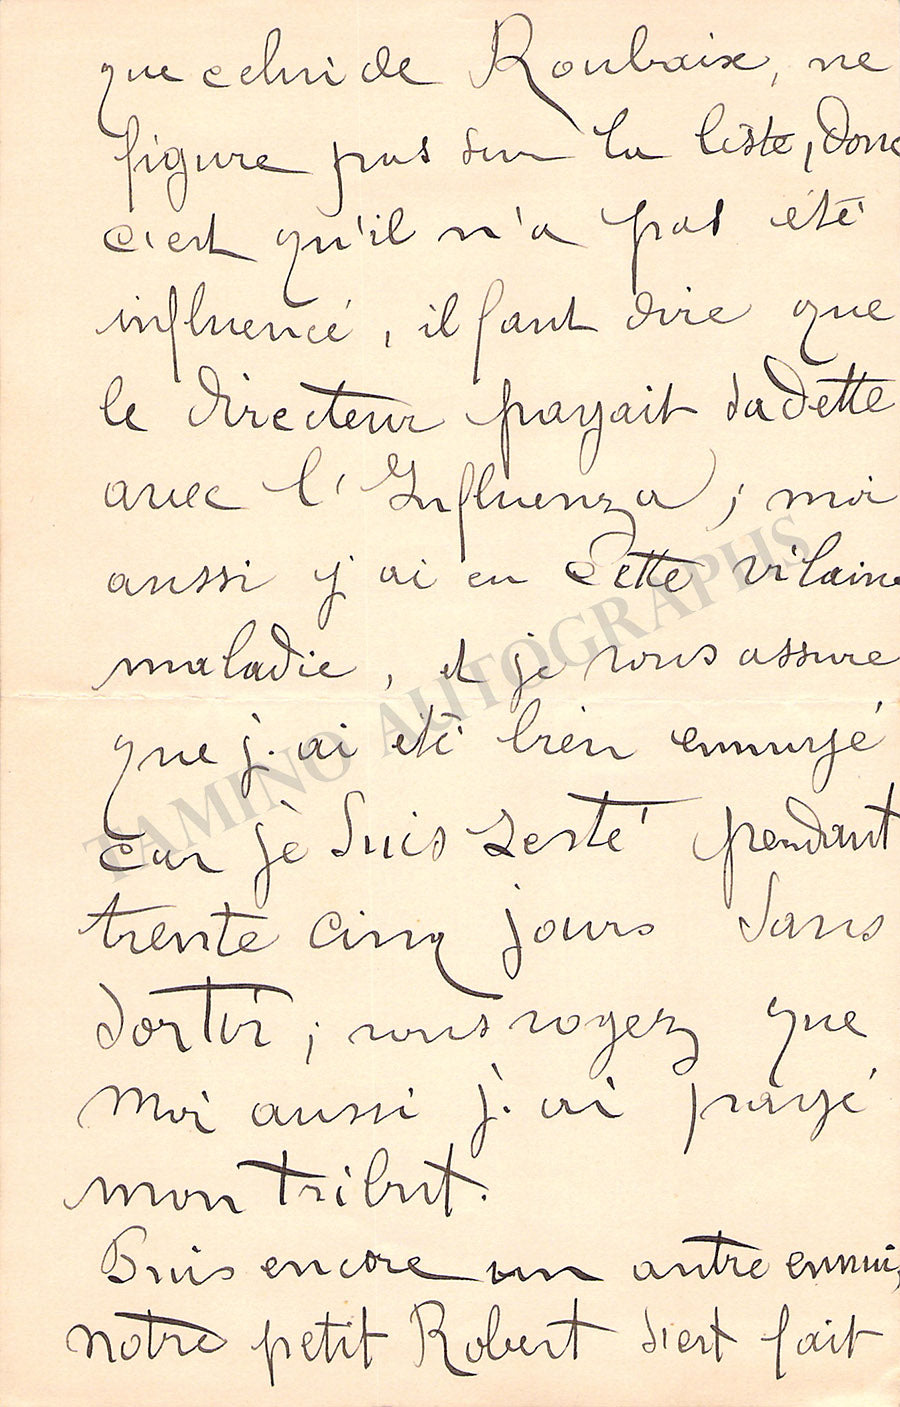 que celui de Roubaix, ne
figure pas sur la liste, donc
c'est qu'il n'a pas été
influencé, il faut dire que
le directeur payait sa dette
avec l'Influenza ; moi
aussi j'ai eu cette vilaine
maladie, et je vous assure
que j'ai été bien ennuyé
car je suis resté pendant
trente cinq jours sans
sortir ; vous voyez que
moi aussi j'ai payé
mon tribut.
Puis encore un autre ennui,
notre petit Robert s'est fait
TAMINO AUTOGRAPHS